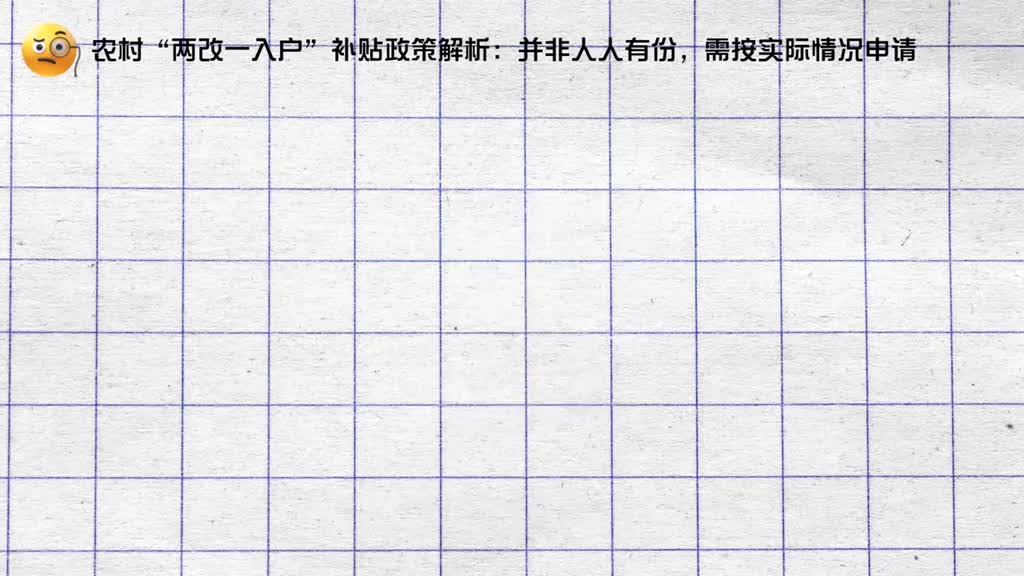 农村“两改一入户”补贴政策解析：并非人人有份，需按实际情况申请